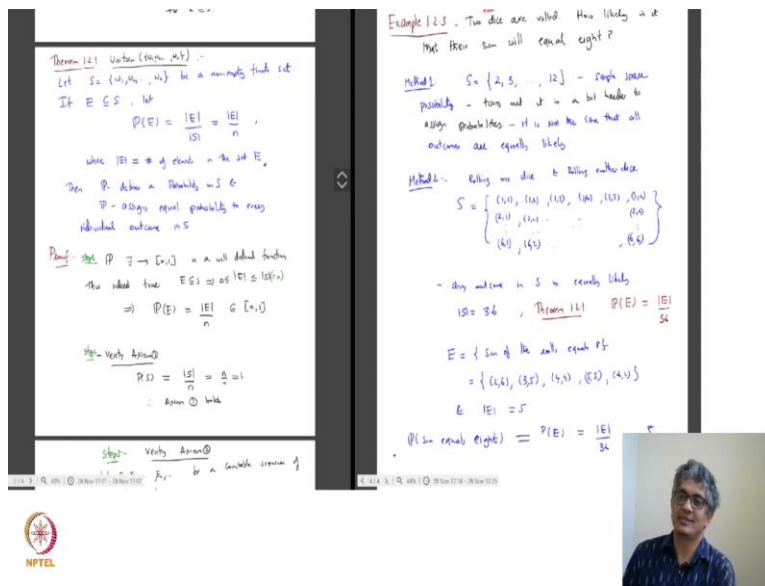 Theorem 1.2.1 Uniform ({ω1, ω2, .., ωn}) :-
Let S = {ω1, ω2, .., ωn} be a non-empty finite set
If E ⊆ S, let
P(E) = |E|/|S| = |E|/n ,
where |E| = # of elements in the set E.
Then P- defines a Probability on S &
P - assigns equal probability to every
individual outcome in S
Proof:- Step1 P: → [0,1] is a well defined function
This indeed true E ⊆ S ⇒ 0 ≤ |E| ≤ |S| (=n)
⇒ P(E) = |E|/n ∈ [0,1]
Step - Verify Axiom ①
P(S) = |S|/n = n/n = 1
∴ Axiom ① holds
Step - Verify Axiom ②
be a countable sequence of
Example 1.2.3 . Two dice are rolled How likely is it
that their sum will equal eight ?
Method 1: S = { 2, 3, ..., 12 } - Sample space
probability - turns out it is a bit harder to
assign probabilities - it is not the case that all
outcomes are equally likely
Method 2:- Rolling one dice & Rolling another dice
S = { (1,1), (1,2), (1,3), (1,4), (1,5), (1,6)
(2,1), (2,2) ... (2,6)
(6,1), (6,2) .. , (6,6) }
- any outcome in S is equally likely
|S| = 36 , Theorem 1.2.1 P(E) = |E|/36
E = { Sum of the rolls equals 8 }
= { (2,6), (3,5), (4,4), (5,3), (6,2) }
& |E| = 5
P(sum equals eight) = P(E) = |E|/36 5
NPTEL